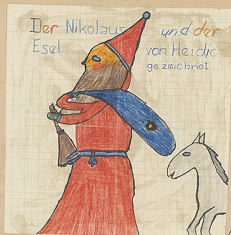 Der Nikolaus und der
Esel. von Heidic
gezeichnet